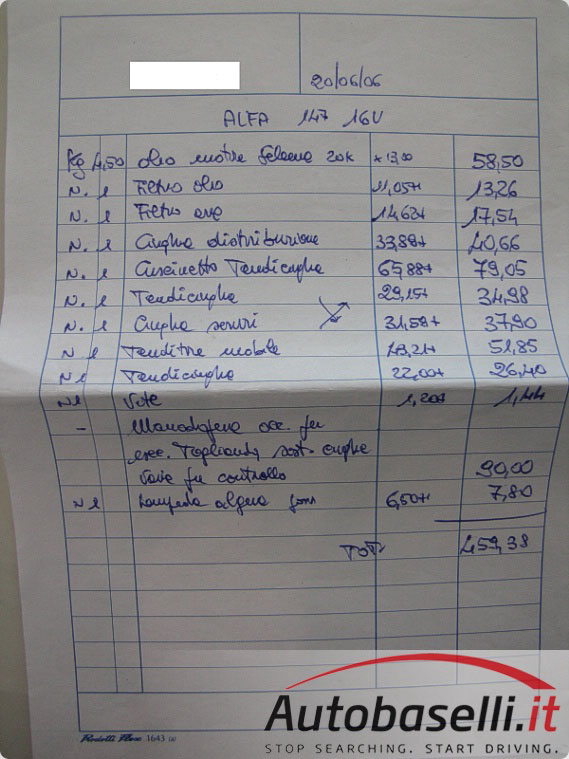 20/06/06
ALFA 147 16V
Kg 4,50 olio motore Selenia 20K × 13,00 58,50
N. 1 Filtro olio 11,05+ 13,26
N. 1 Filtro 14,62+ 17,54
N. 1 Cinghia distribuzione 33,88+ 40,66
N. 1 Cuscinetto Tendicinghia 65,88+ 79,05
N. 1 Tendicinghia 29,15+ 34,98
N. 1 Cinghia servizi 31,58+ 37,90
N 1 Tenditore mobile 43,21+ 51,85
N 1 Tendicinghia 22,00+ 26,40
N 1 1,20+ 1,44
- Manodopera occ. per
Tagliando sost. cinghie
Varie per controllo 90,00
N 1 Lampada 6,50+ 7,80
TOT. 459,38
1643
Autobaselli.it
STOP SEARCHING. START DRIVING.